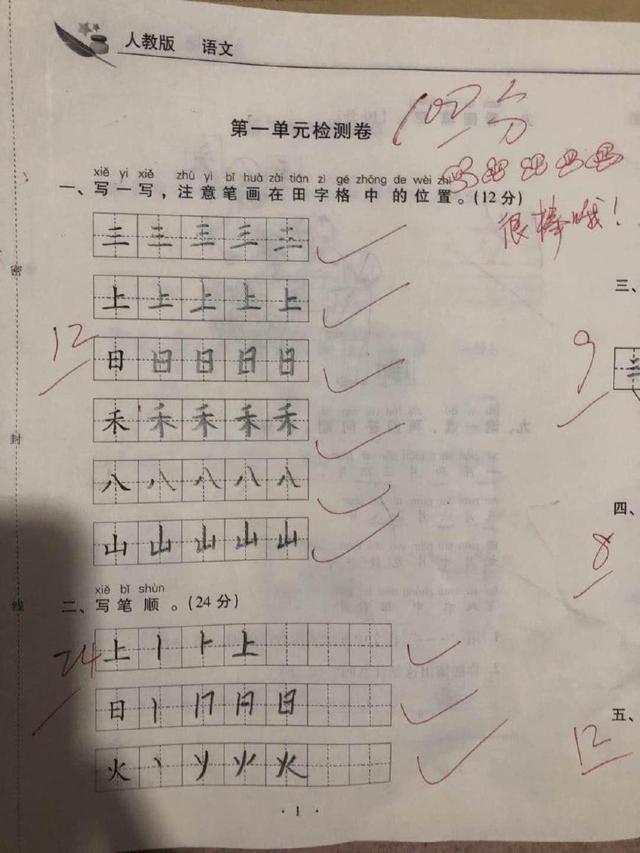 人教版 语文
第一单元检测卷
100分
很棒哦!
xiě yi xiě zhù yì bǐ huà zài tián zì gé zhōng de wèi zhì
一、写一写,注意笔画在田字格中的位置。(12分)
三 三 三 三 三
上 上 上 上 上
日 日 日 日 日
12
禾 禾 禾 禾 禾
八 八 八 八 八
山 山 山 山 山
xiě bǐ shùn
二、写笔顺。(24分)
24
上 丨 ⺊ 上
日 丨 冂 月 日
火 丶 丷 火 火
·1·
密
封
线
三、
9
三
四、
8
五、
12